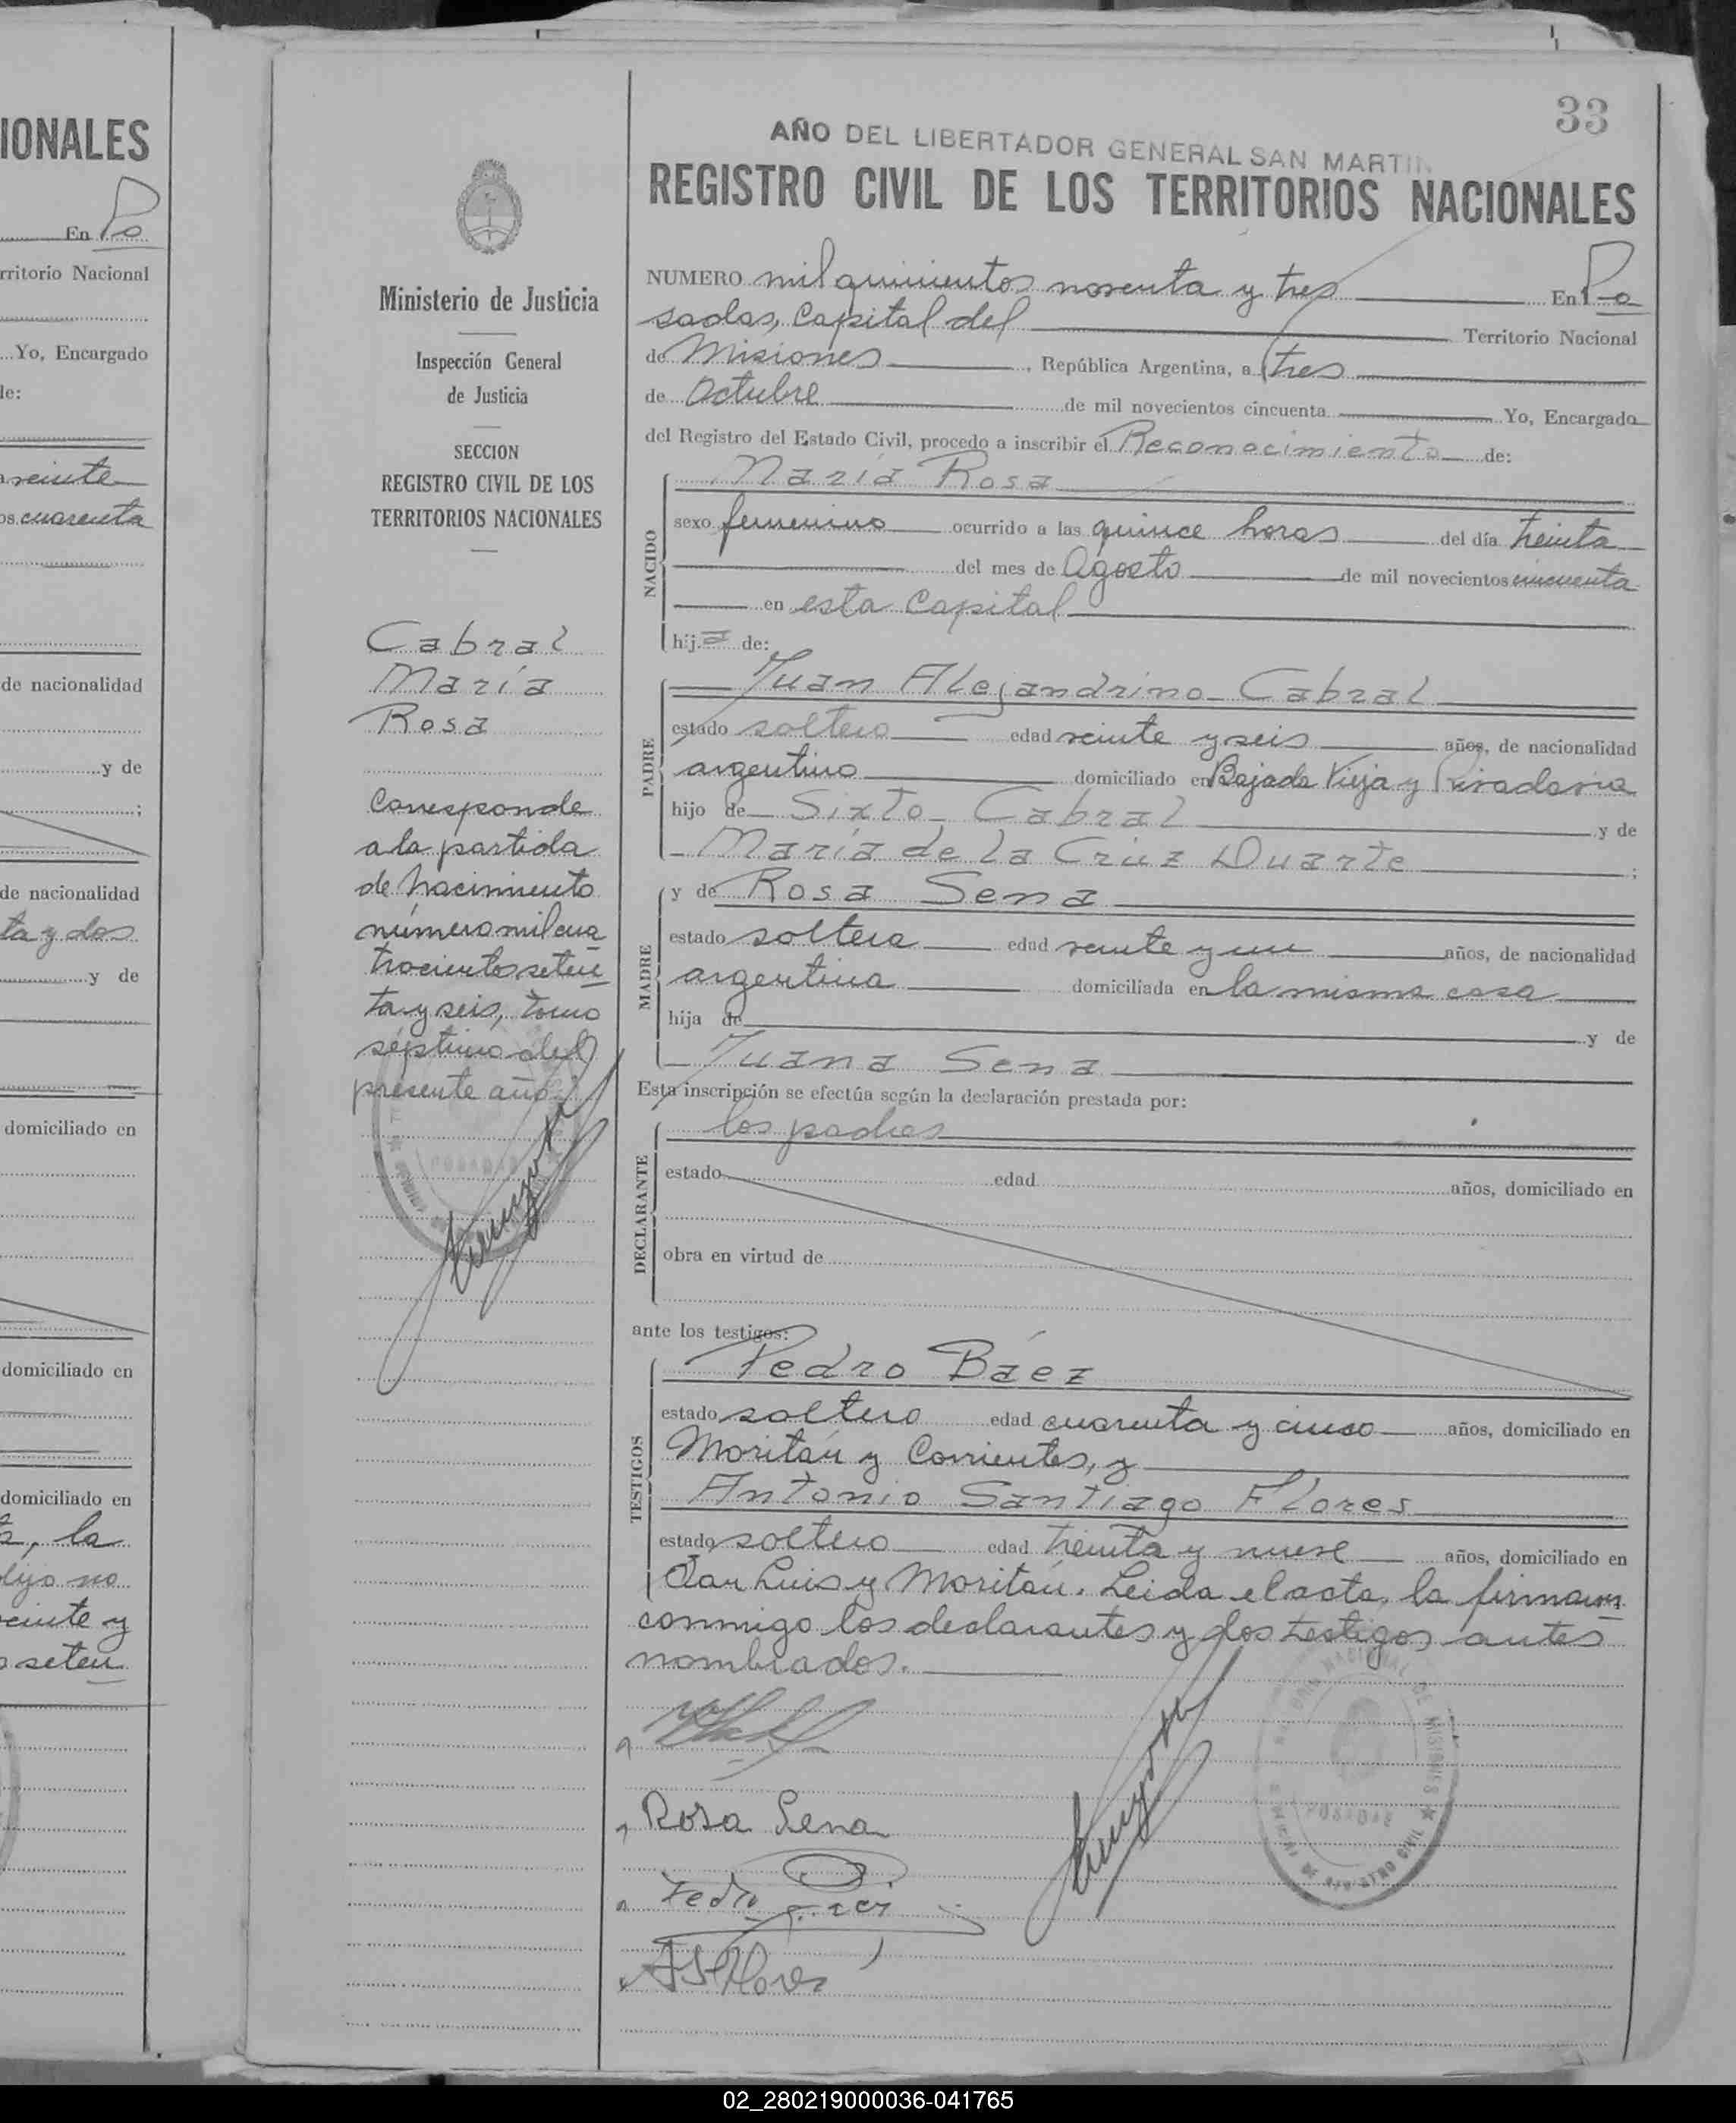 IONALES
En Po
rritorio Nacional
Yo, Encargado
de:
veinte
os cuarenta
de nacionalidad
y de
de nacionalidad
ta y dos
y de
domiciliado en
domiciliado en
domiciliado en
la
dijo no
veinte y
seten
33
AÑO DEL LIBERTADOR GENERAL SAN MARTIN
REGISTRO CIVIL DE LOS TERRITORIOS NACIONALES
Ministerio de Justicia
Inspección General
de Justicia
SECCION
REGISTRO CIVIL DE LOS
TERRITORIOS NACIONALES
Cabral
María
Rosa
Corresponde
a la partida
de nacimiento
número mil cua
trocientos seten
ta y seis, tomo
séptimo del
presente año.
POSADAS
NUMERO mil quinientos noventa y tres En Po
sadas, Capital del Territorio Nacional
de Misiones, República Argentina, a tres
de Octubre de mil novecientos cincuenta Yo, Encargado
del Registro del Estado Civil, procedo a inscribir el Reconocimiento de:
NACIDO
María Rosa
sexo femenino ocurrido a las quince horas del día treinta
del mes de Agosto de mil novecientos cincuenta
en esta Capital
hij a de:
PADRE
Juan Alejandrino Cabral
estado soltero edad veinte y seis años, de nacionalidad
argentino domiciliado en Bajada Vieja y Rivadavia
hijo de Sixto Cabral y de
María de la Cruz Duarte ;
MADRE
y de Rosa Sena
estado soltera edad veinte y un años, de nacionalidad
argentina domiciliada en la misma casa
hija de y de
Juana Sena
Esta inscripción se efectúa según la declaración prestada por:
DECLARANTE
los padres
estado edad años, domiciliado en
obra en virtud de
ante los testigos:
TESTIGOS
Pedro Báez
estado soltero edad cuarenta y cinco años, domiciliado en
Moritán y Corrientes, y
Antonio Santiago Flores
estado soltero edad treinta y nueve años, domiciliado en
San Luis y Moritán. Leida el acta, la firman
conmigo los declarantes y los testigos antes
nombrados.
Rosa Sena
Pedro
A S Flores
POSADAS
02_280219000036-041765